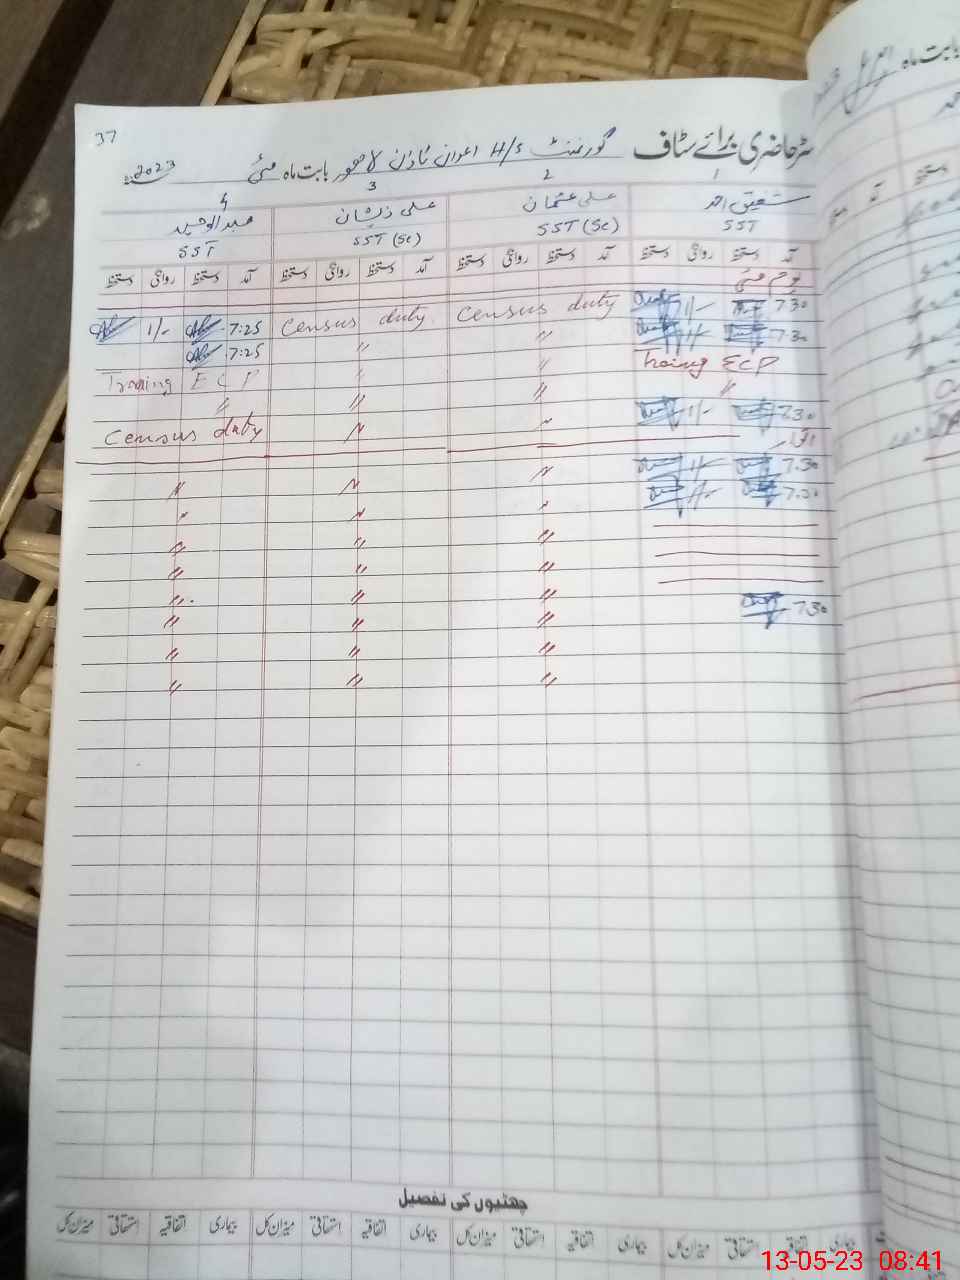 37
رجسٹر حاضری برائے سٹاف گورنمنٹ H/S اعوان ٹاؤن لاہور بابت ماہ مئی 2023ء
1 2 3 4
شفیق احمد علی عثمان علی ذیشان عبدالوحید
SST SST (Sc) SST (Sc) SST
آمد دستخط روانگی دستخط آمد دستخط روانگی دستخط آمد دستخط روانگی دستخط آمد دستخط روانگی دستخط
یوم مئی
7.30 1/- Census duty Census duty 7:25 1/-
7.30 1/- " " 7:25
Traing ECP " " Traning ECP
" " " "
7.30 1/- " " Census duty
اتوار
7.30 1/- " " "
7.30 1/- " " "
" " "
" " "
" " "
7.30 " " "
" " "
" " "
چھٹیوں کی تفصیل
بیماری اتفاقیہ استحقاقی میزان کل بیماری اتفاقیہ استحقاقی میزان کل بیماری اتفاقیہ استحقاقی میزان کل بیماری اتفاقیہ استحقاقی میزان کل
بابت ماہ
آمد دستخط
13-05-23 08:41